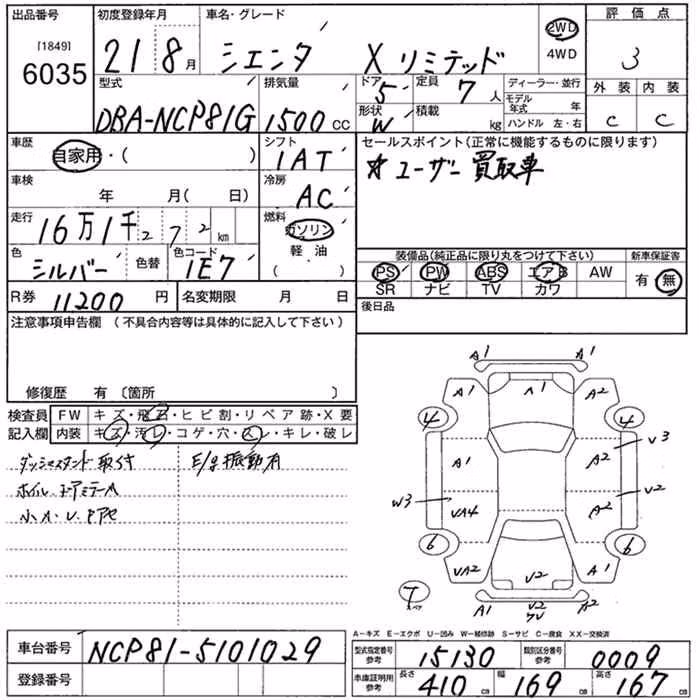 出品番号 初度登録年月 車名・グレード 評価点
[1849]
6035
21 8月 シエンタ Xリミテッド 2WD 4WD 3
型式 排気量 ドア 定員 ディーラー・並行 外装 内装
DBA-NCP81G 1500cc 5 7人 モデル年式 年 C C
形状 積載 ハンドル 左・右
W kg
車歴 シフト セールスポイント(正常に機能するものに限ります)
自家用・( ) 1AT ☆ユーザー買取車
車検 冷房
年 月( 日) AC
走行 燃料
16万1千272km ガソリン
色 色替 色コード 軽油
シルバー 1E7 ( )
装備品(純正品に限り丸をつけて下さい) 新車保証書
PS PW ABS エアB AW 有・無
SR ナビ TV カワ
R券 11200円 名変期限 月 日 後日品
注意事項申告欄 (不具合内容等は具体的に記入して下さい)
修復歴 有〔箇所 〕
検査員 FW キズ・飛石・ヒビ割・リペア跡・X要
記入欄 内装 キズ・汚レ・コゲ・穴・スレ・キレ・破レ
ダッシュスタンド取付 E/g振動有
ホイル、ドアミラーA
小A・U
A1 A1
A1 A1 A2
4 4
A1 A2 V3
W3 VA4 A2 V2
6 6
VA2 V2 A1
7 スペア A1 V2 A1
A-キズ E-エクボ U-凹み W-補修跡 S-サビ C-腐食 XX-交換済
車台番号 NCP81-5101029
型式指定番号 参考 15130 類別区分番号 参考 0009
登録番号
車庫証明用 参考 長さ 410cm 幅 169cm 高さ 167cm